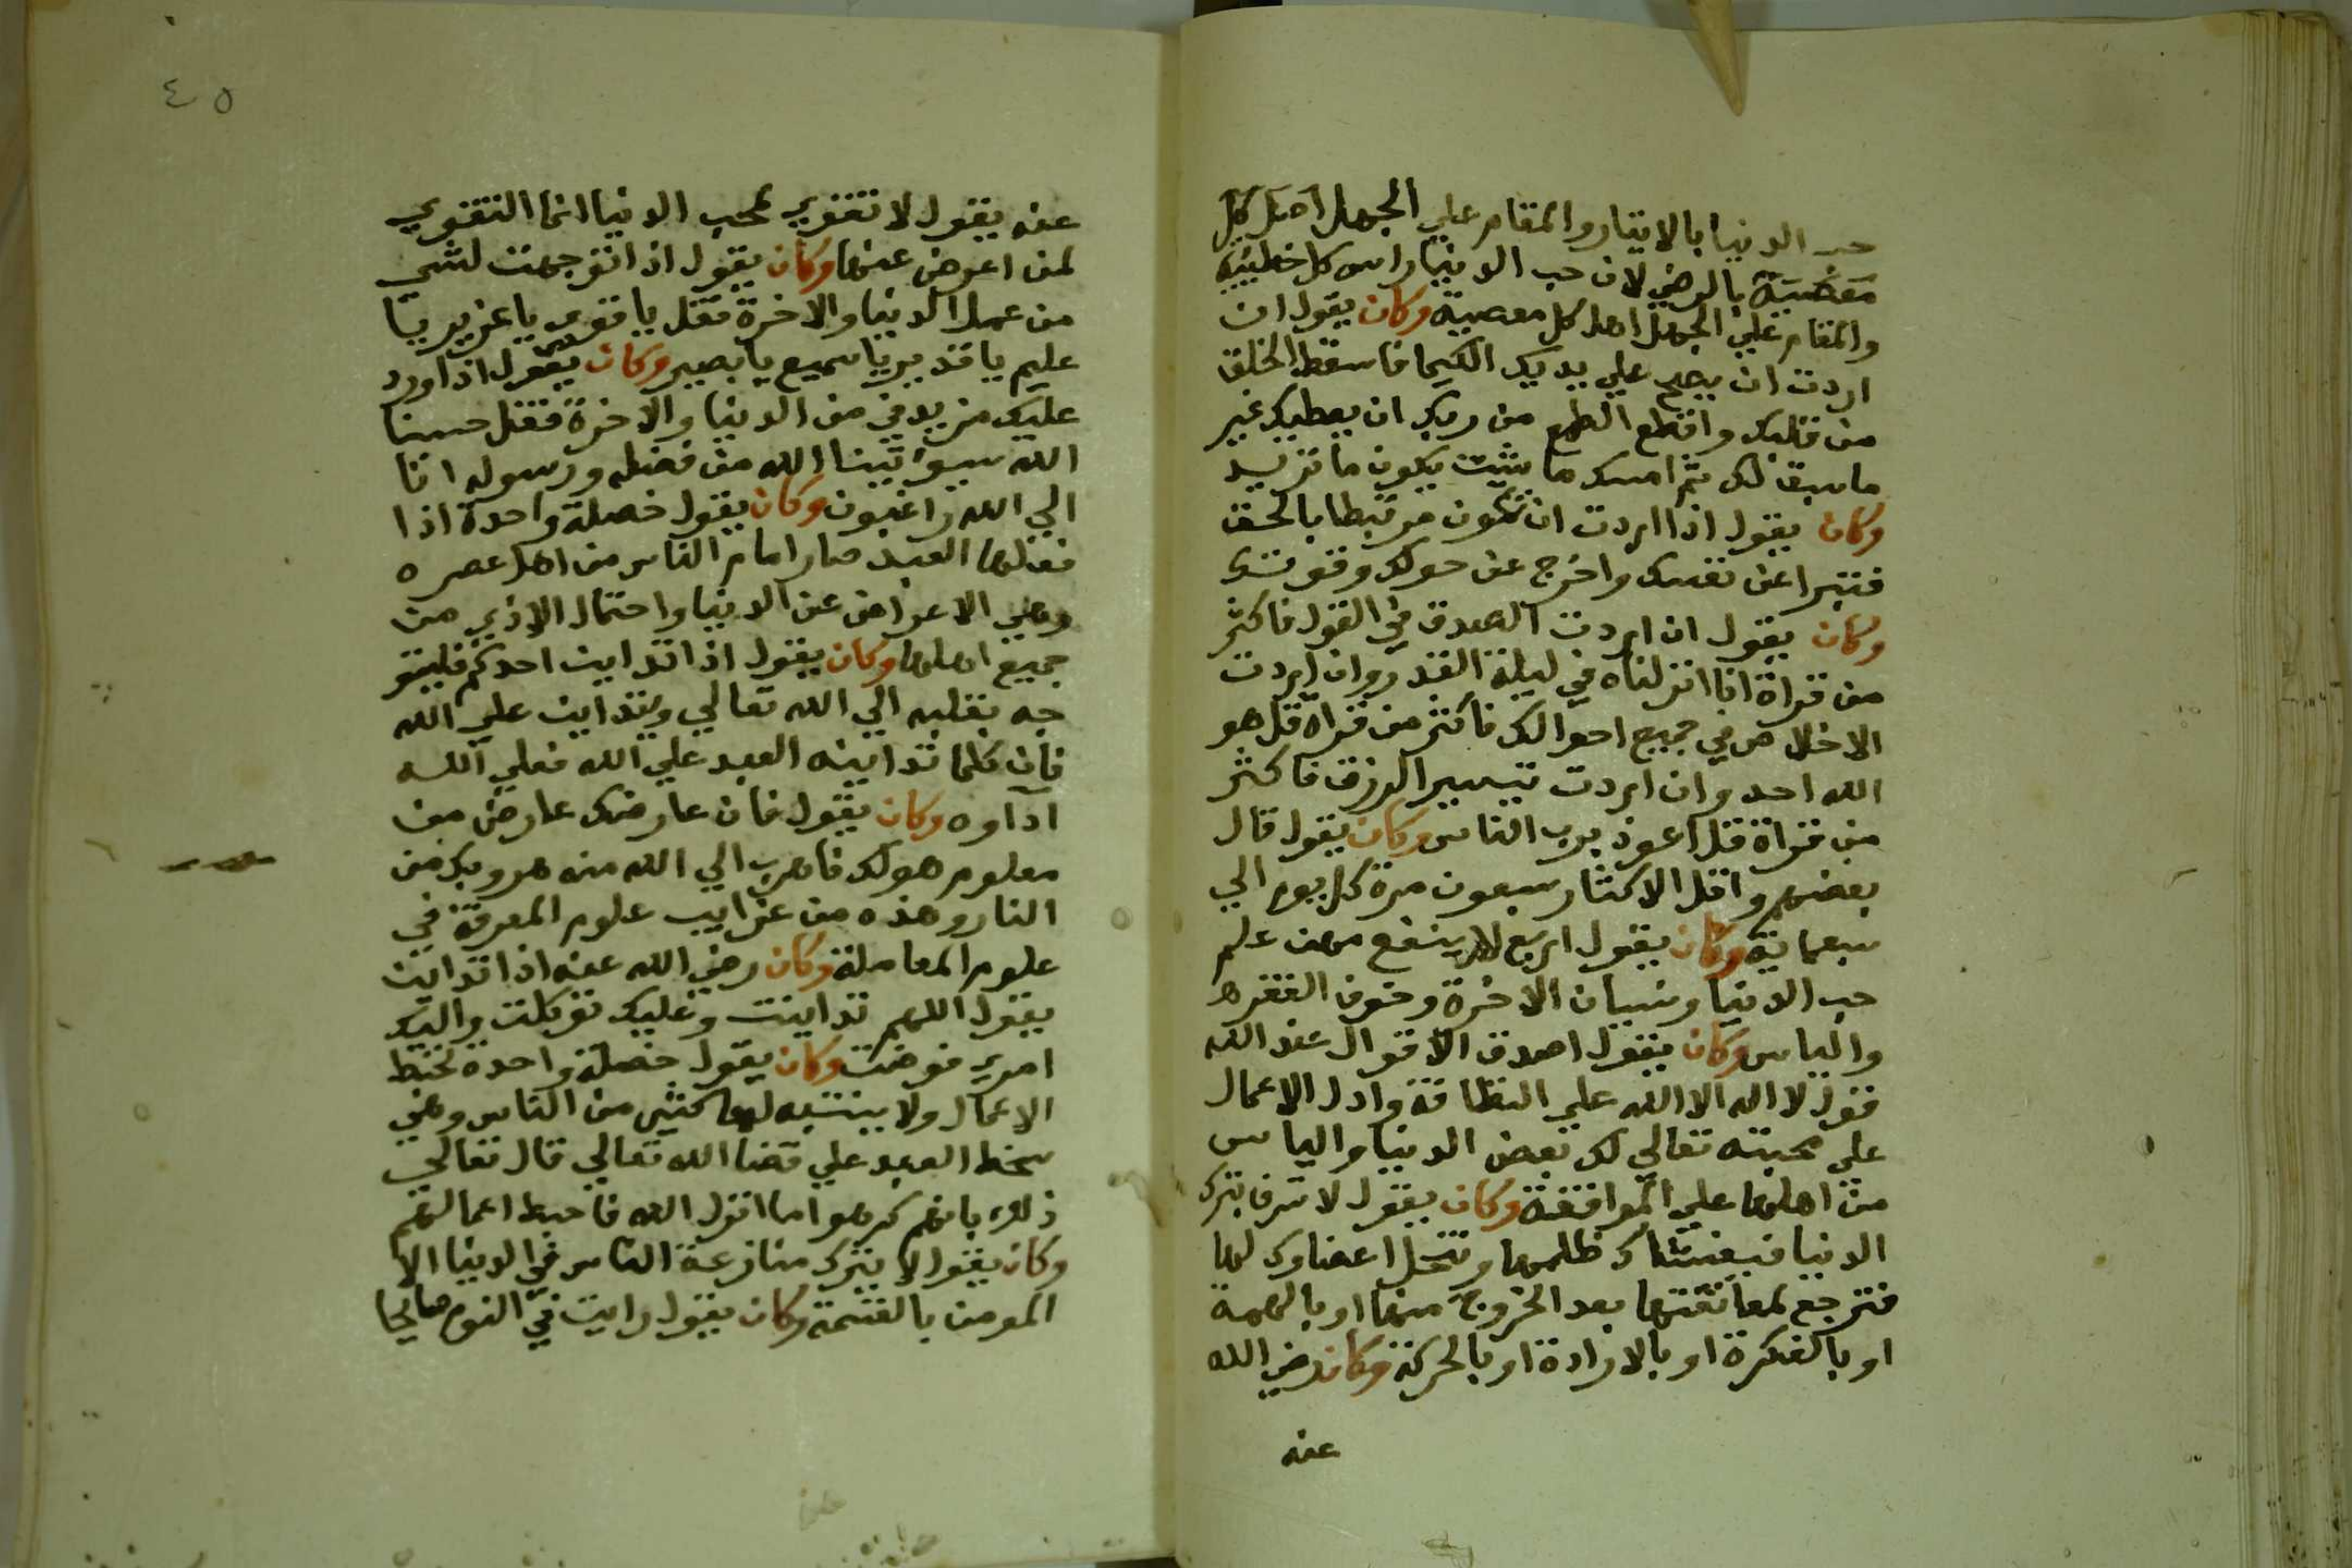 حب الدنيا بالايثار والمقام علي الجهل اصل كل
معصية بالرضي لان حب الدنيا راس كل خطيئة
والمقام علي الجهل اصل كل معصية وكان يقول ان
اردت ان يصح علي يديك الكيميا فاسقط الخلق
من قلبك واقطع الطمع من ربك ان يعطيك غير
ما سبق لك ثم امسك ما شئت يكون ما تريد
وكان يقول اذا اردت ان تكون مرتبطا بالحق
فتبرا عن نفسك واخرج عن حولك وقوتك
وكان يقول ان اردت الصدق في القول فاكثر
من قراة انا انزلناه في ليلة القدر وان اردت
الاخلاص في جميع احوالك فاكثر من قراة قل هو
الله احد وان اردت تيسير الرزق فاكثر
من قراة قل اعوذ برب الناس وكان يقول قال
بعضهم واقل الاكثار سبعون مرة كل يوم الي
سبعماية وكان يقول اربع لا ينفع معهن علم
حب الدنيا ونسيان الاخرة وخوف الفقر
والناس وكان يقول اصدق الاقوال عند الله
قول لا اله الا الله علي النظافة وادل الاعمال
علي محبته تعالي لك بغض الدنيا والياس
من اهلها علي الموافقة وكان يقول لا تسرف بترك
الدنيا فيغشاك ظلمها وتنحل اعضاوك لها
فترجع لمعانقتها بعد الخروج منها او بالهمة
او بالفكرة او بالارادة او بالحركة وكان رضي الله
عنه
٤٥
عنه يقول لا تقوي لمحب الدنيا انما التقوي
لمن اعرض عنها وكان يقول اذا توجهت لشي
من عمل الدنيا والاخرة فقل يا قوي يا عزيز يا
عليم يا قدير يا سميع يا بصير وكان يقول اذا ورد
عليك مزيد في من الدنيا والاخرة فقل حسبنا
الله سيوتينا الله من فضله ورسوله انا
الي الله راغبون وكان يقول خصلة واحدة اذا
فعلها العبد صار امام الناس من اهل عصره
وهي الاعراض عن الدنيا واحتمال الاذي من
جميع اهلها وكان يقول اذا تداين احدكم فليتو
جه بقلبه الي الله تعالي ويتداين علي الله
فان كلما تداينه العبد علي الله فعلي الله
اداوه وكان يقول فان عارضك عارض من
معلوم هو لك فاهرب الي الله منه هروبك من
النار وهذه من غرايب علوم المعرفة في
علوم المعاملة وكان رضي الله عنه اذا تداين
يقول اللهم تداينت وعليك توكلت واليك
امري فوضت وكان يقول خصلة واحدة تحبط
الاعمال ولا يتنبه لها كثير من الناس وهي
سخط العبد علي قضا الله تعالي قال تعالي
ذلك بانهم كرهوا ما انزل الله فاحبط اعمالهم
وكان يقول لا يترك منازعة الناس في الدنيا الا
المومن بالقسمة وكان يقول رايت في النوم صايحا